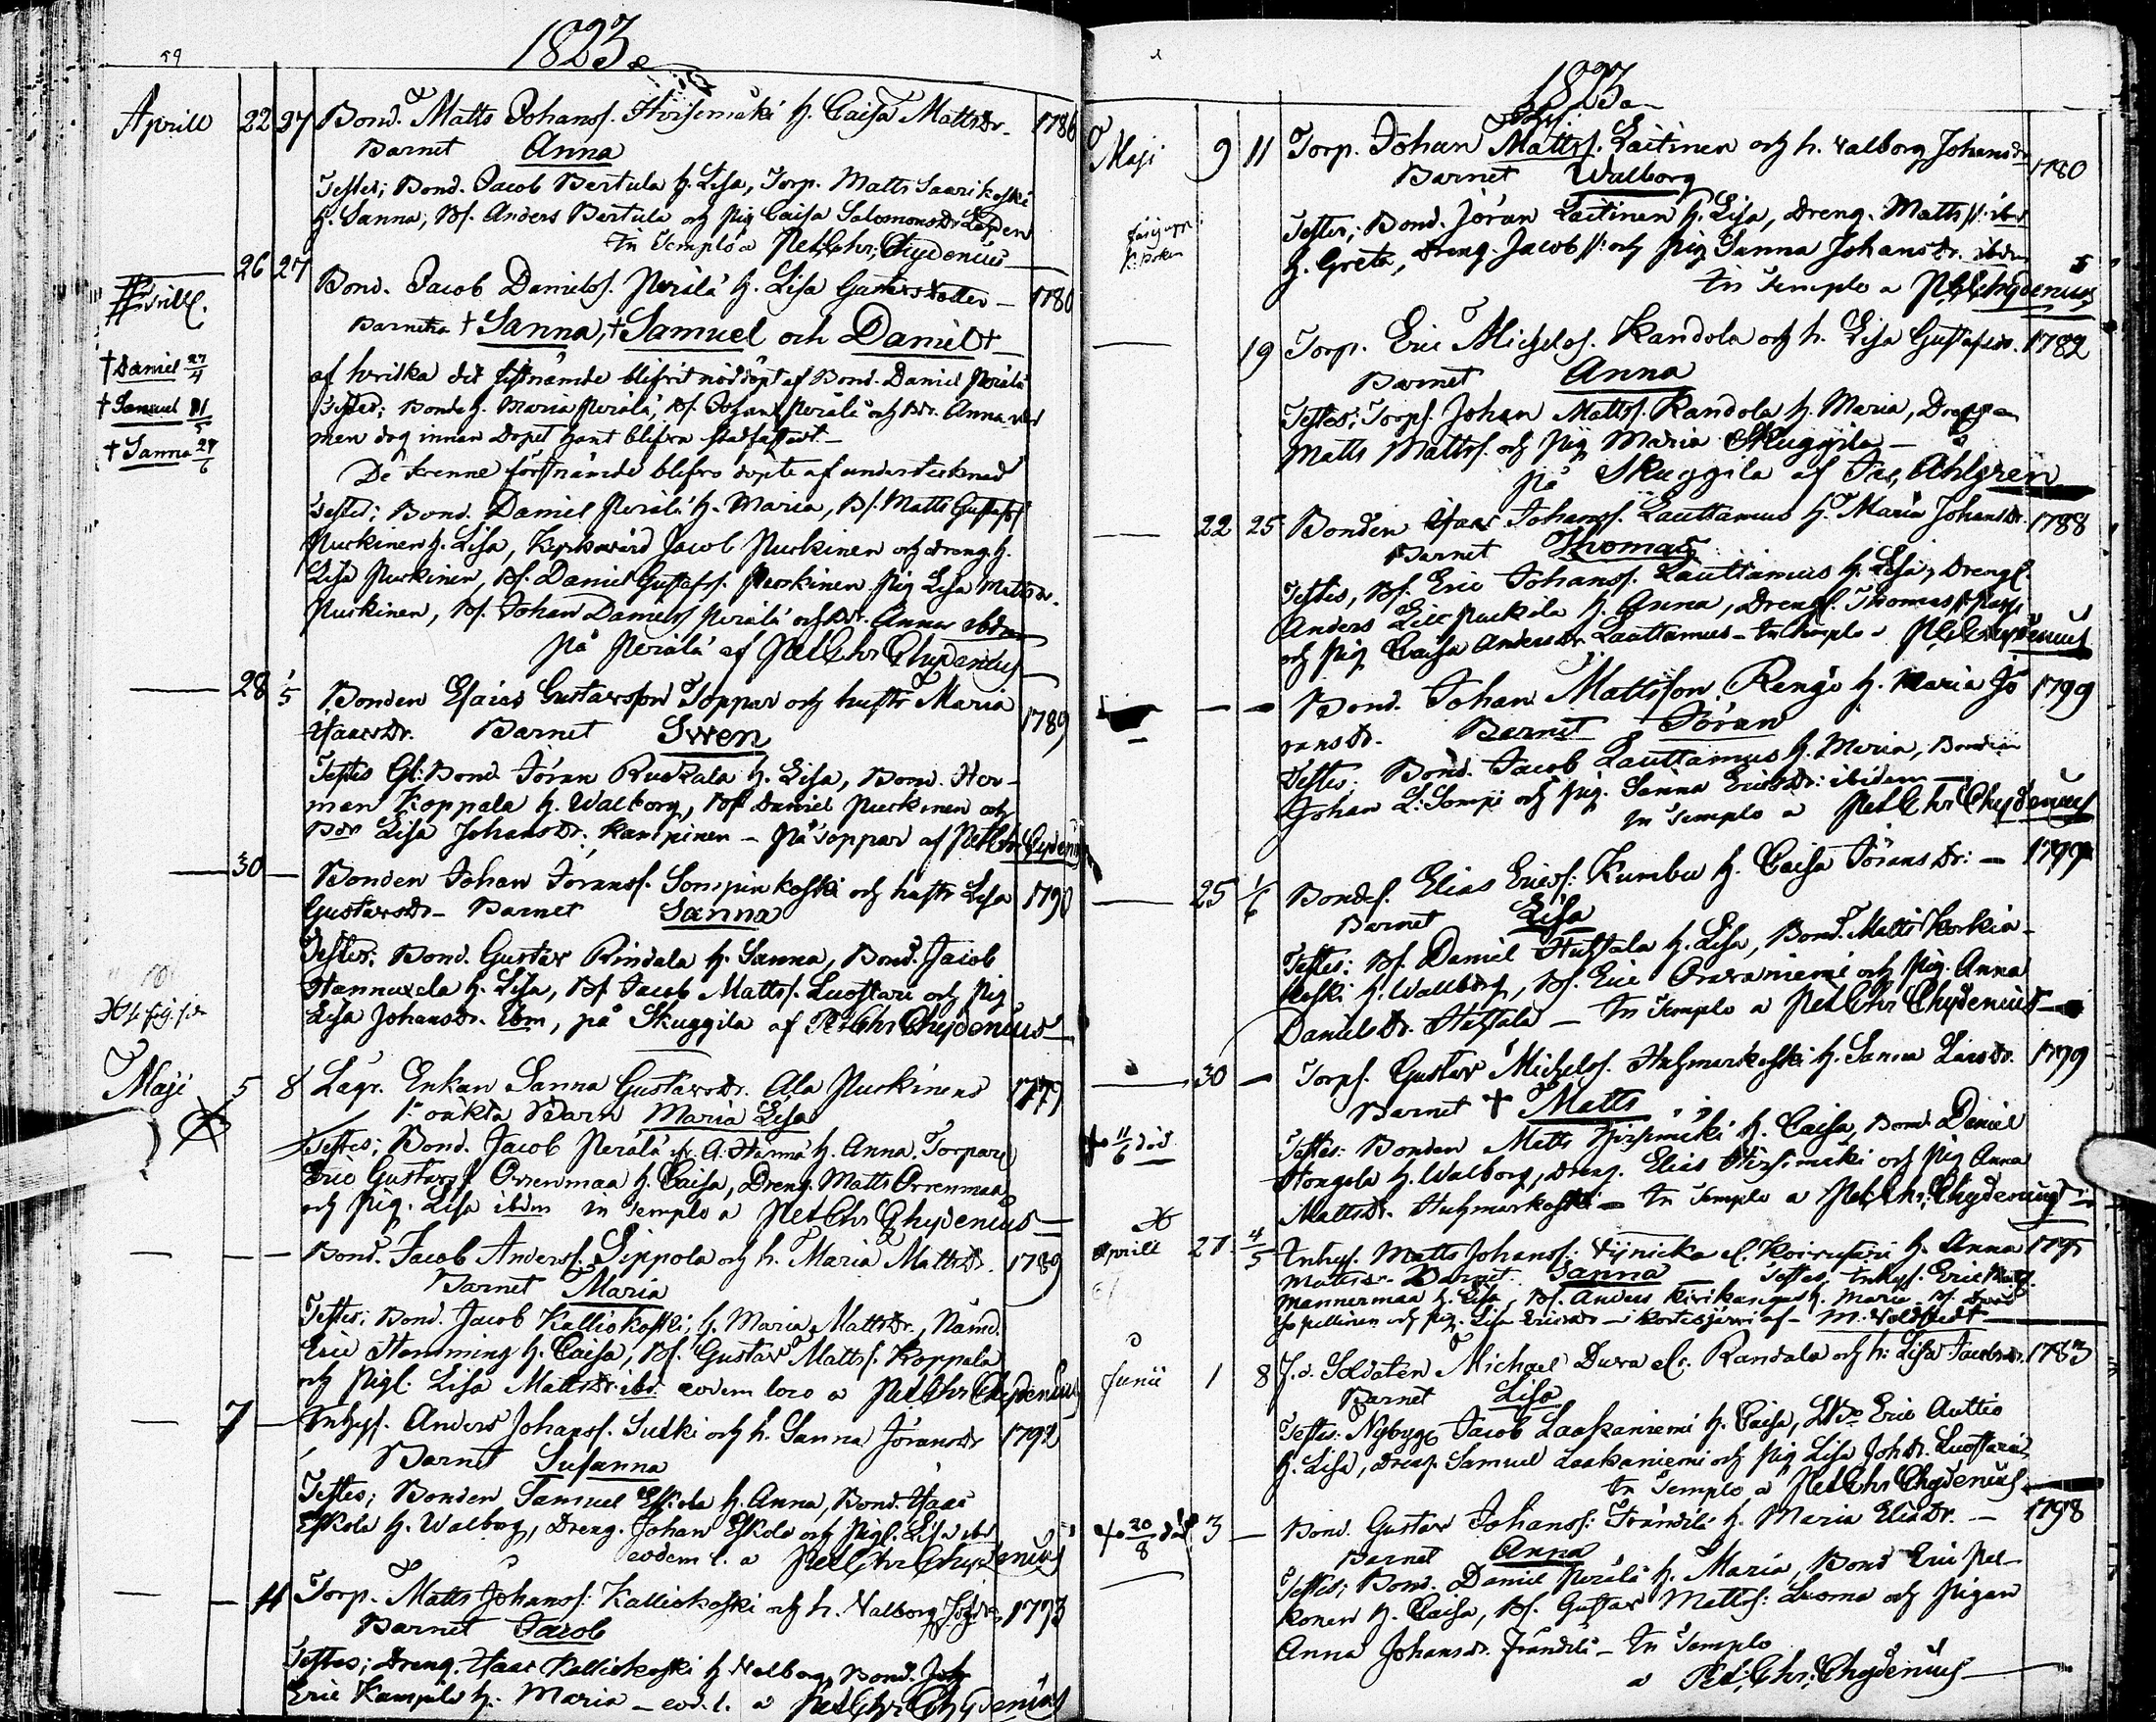 59
1823
Aprill 22 27 Bond. Matts Johanss. Hirsimäki h. Caisa Mattsdr. 1786
Barnet Anna
Testes; Bond. Jacob Bertula h. Lisa, Torp. Matts Saarikoski
h. Sanna, Bs. Anders Bertula och pig Caisa Salomonsdr
in Templo a Pet. Chr. Chydenius
26 27 Bond. Jacob Daniels. Perälä h. Lisa Gustavsdotter 1780
Aprill.
Barnen † Sanna, † Samuel och Daniel †
† Daniel 27/4
af hvilka det sistnämde blifvit nöddöpt af Bond. Daniel Perälä
† Samuel 11/5
Testes; Bond h. Maria Perälä, Bs. Johan Perälä och Bdr. Anna
† Sanna 24/6
men dog innan Dopet hant blifva stadfästadt.
De trenne förstnämde blefvo döpte af undertecknad
Testes; Bond. Daniel Perälä h. Maria, Bs. Matts Gustafss
Purkinen h. Lisa, Kyrkovärd Jacob Purkinen och dreng. h.
Lisa Purkinen, Bs. Daniel Gustafss. Purkinen pig Lisa Mattsdr.
Purkinen, Bs. Johan Daniels Perälä och Bdr. Anna ibdm
på Perälä af Pet Chr Chydenius
28 1/5 Bonden Esaias Gustavsson Toppar och hustr Maria 1789
Isaacsdr. Barnet Swen
Testes Gl: Bond Jöran Ruskala h. Lisa, Bond. Her-
man Koppala h. Walborg, Bs Daniel Purkinen och
Bdr Lisa Johansdr. Kampinen - på Toppar af Pet Chr Chydenius
30 Bonden Johan Jöranss. Sompinkoski och hustr Lisa 1790
Gustavsdr - Barnet Sanna
Testes: Bond. Gustav Rindala h. Sanna, Bond. Jacob
Hannuxela h. Lisa, Bs Jacob Mattss. Luostari och pig
Lisa Johansdr. ibm, på Skuggila af Pet Chr Chydenius
Maji 5 8 Lägr. Enkan Sanna Gustavsdr. Ala Purkinens 1779
1: oäkta Barn Maria Lisa
Testes; Bond. Jacob Perälä A. Hannä h. Anna, Torpare
Eric Gustavss Orrenmaa h. Caisa, Dreng. Matts Orrenmaa
och pig. Lisa ibdm in Templo a Pet Chr Chydenius
Bond. Jacob Anderss. Lippola och h. Maria Mattsdr. 1789
Barnet Maria
Testes: Bond. Jacob Kalliokoski, h. Maria Mattsdr., Nämd.
Eric Hemming h. Caisa, Bs. Gustav Mattss. Koppala
och pigl. Lisa Mattsdr ibd: eodem loco a Pet Chr Chydenius
7 Inhys. Anders Johanss. Sulki och h. Sanna Jöransdr 1792
Barnet Susanna
Testes; Bonden Samuel Eskola h. Anna, Bond. Isaac
Eskola h. Walborg, Dreng. Johan Eskola och pigl. Lisa ibd
eodem l. a Pet Chr Chydenius
11 Torp. Matts Johanss: Kalliokoski och h. Walborg 1793
Barnet Jacob
Testes; Dreng. Isaac Kalliokoski h Walborg, Bond. Joh
Eric Kampila h. Maria - eod. l. a Pet Chr Chydenius
1823
Maji 9 11 Torp. Johan Mattss. Laitinen och h. Walborg Johansdr 1780
Barnet Walborg
Testes; Bond. Jöran Laitinen h. Lisa, Dreng. Matts ibd
h. Greta, Dreng Jacob och pig Sanna Johansdr. ibdm
in Templo a Pet Chydenius
19 Torp. Eric Michelss. Kandola och h. Lisa Gustafsdr. 1782
Barnet Anna
Testes; Torps. Johan Mattss. Kandola h. Maria, Drengen
Matts Mattss. och pig Maria Skuggila
på Skuggila af Jac. Ahlgren
22 25 Bonden Isaac Johanss. Lauttamus h. Maria Johansdr. 1788
Barnet Thomas
Testes, Bs. Eric Johanss. Lauttamus h. Lisa, Drengl.
Anders Lill Puckila h. Anna, Drengs. Thomas
och pig Caisa Andersdr Lauttamus - in Templo a P. C. Chydenius
Bond. Johan Mattsson Rengo h. Maria Jö 1799
ransdr. Barnet Jöran
Testes; Bond. Jacob Lauttamus h. Maria, Bonden
Johan L: Sompi och pig. Sanna Ericsdr: ibidem
in Templo a Pet Chr Chydenius
25 1/6 Bondes. Elias Ericss: Kumbu h. Caisa Jöransdr: - 1799
Barnet Lisa
Testes: Bs. Daniel Huhtala h. Lisa, Bond. Matts Korkia-
koski h. Wallborg, Bs. Eric Oravaniemi och pig. Anna
Danielsdr. Huhtala - in Templo a Pet Chr Chydenius
30 Torps. Gustav Michelss. Huhmarkoski h. Sanna Larsdr. 1799
Barnet † Matts
† 11/6 död
Testes: Bonden Matts Hirsimäki h. Caisa, Bond. Daniel
Hongela h. Walborg, Dreng. Elias Hirsimäki och pig Anna
Mattsdr. Huhmarkoski - in Templo a Pet Chr. Chydenius
Aprill 27 4/5 Inhys. Matts Johanss: Vijnicka el. Koirusari h. Anna 1795
Mattsdr. Barnet Sanna Testes, Inhys. Eric
Mannermaa h. Lisa, Bs. Anders Kivikangas h. Maria
och pig. Lisa Ericsdr - i Kortesjärvi af - M. Woldstedt
Junii 1 8 F.d. Soldaten Michael Dura el: Randala och h: Lisa Jacobsdr. 1783
Barnet Lisa
Testes: Nybygg Jacob Laakaniemi h. Caisa, Eric Auttio
h. Lisa, Dreng. Samuel Laakaniemi och pig Lisa Johdr. Luostari
in Templo a Pet Chr Chydenius
† 20/8 död 3 Bond. Gustav Johanss: Frändilä h. Maria Eliedr. - 1798
Barnet Anna
Testes; Bond. Daniel Perälä h. Maria, Bond Eric Pel-
konen h. Caisa, Bs. Gustav Mattss: Luoma och pigan
Anna Johansdr. Frändilä - in Templo
a Pet; Chr; Chydenius